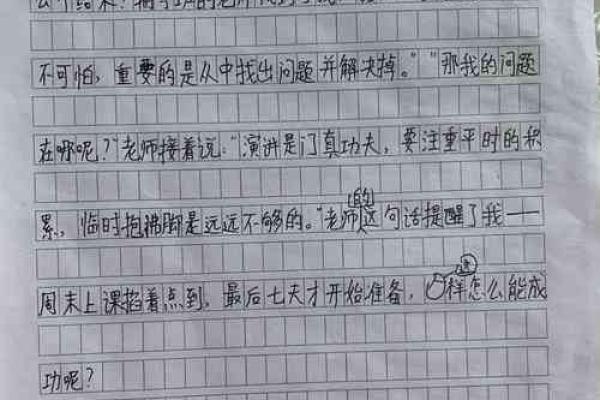 不可怕，重要的是从中找出问题并解决掉。”“那我的问题
在哪呢？”老师接着说：“演讲是门真功夫，要注重平时的积
累，临时抱佛脚是远远不够的。”老师的这句话提醒了我——
周末上课掐着点到，最后七天才开始准备，这样怎么能成
功呢？